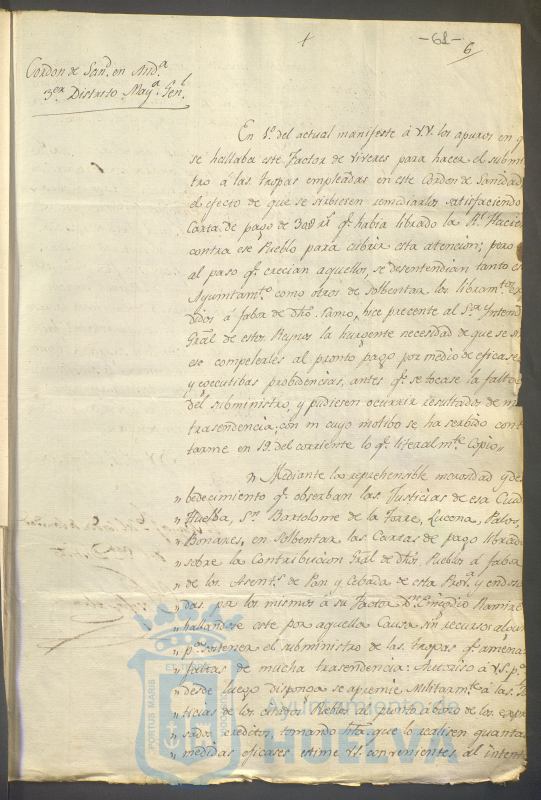 -61-
6
Cordon de San.d en And.a
3.er Distrito May.a Gen.l
En 1.o del actual manifeste á VV. los apuros en q
se hallaba este Factor de viveres para hacer el submi
tro á las tropas empleadas en este Cordon de Sanidad
el efecto de que se sirbiesen remediarlos satisfaciendo
Carta de pago de 308 r.s q.e habia librado la R.l Hacie
contra ese Pueblo para cubrir esta atencion; pero
al paso q.e crecian aquellos, se desentendian tanto e
Ayuntam.to como otros de solbentar los libram.tos
didos á fabor de dho. ramo, hice presente al S.or Intend
Gral de estos Reynos la hurgente necesidad de que se
ese compelerles al pronto pago por medio de eficase
y egecutibas probidencias, antes q.e se tocase la falta
del subministro, y pudiesen ocurrir resultados de m
trasendencia; con cuyo motibo se ha serbido con
tarme en 19. del corriente lo q.e literalm.te Copio,,
,, Mediante la reprehensible morosidad y de
,, bedecimiento q.e obserban las Justicias de esa Ciud
,, Huelba, S.n Bartolome de la Torre, Lucena, Palos,
,, Bonares, en solbentar las Cartas de pago librada
,, sobre la Contribucion Gral de dhos. Pueblos á fabor
,, de los Asent.s de Pan y Cebada de esta Prov.a y endosa
,, das por los mismos á su Factor D.n Emigdio Ramire
,, hallandose este por aquella Causa sin recursos
,, p.a sostener el subministro de las tropas q.e amena
,, faltas de mucha trasendencia: Autoriso á VS. p.a
,, desde luego disponga se apremie Militarm.te á las
,, ticias de los citados Pueblos al puntual abono de los expre
,, sados creditos, tomando p.a que lo realisen quanta
,, medidas eficases estime VS. convenientes al intent
PORTUS MARIS
Ayuntamiento de
HUELVA